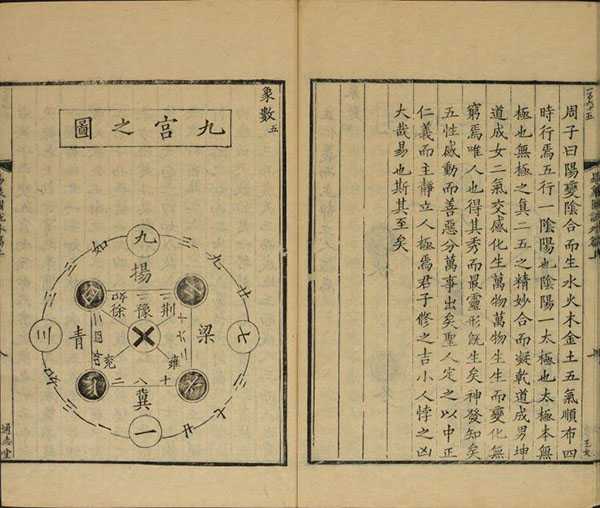 周子曰陽變陰合而生水火木金土五氣順布四
時行焉五行一陰陽也陰陽一太極也太極本無
極也無極之真二五之精妙合而凝乾道成男坤
道成女二氣交感化生萬物萬物生生而變化無
窮焉唯人也得其秀而最靈形旣生矣神發知矣
五性感動而善惡分萬事出矣聖人定之以中正
仁義而主靜立人極焉君子修之吉小人悖之凶
大哉易也斯其至矣
象數五
九宮之圖
九
揚
荊
豫
徐
梁
青
七
三
雍
兖
十八二
冀
一
通志堂